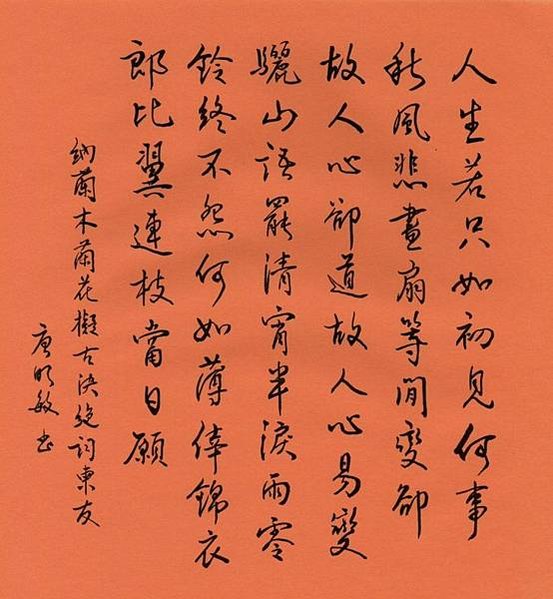 人生若只如初見何事
秋風悲畫扇等閒變卻
故人心卻道故人心易變
驪山語罷清宵半淚雨零
鈴終不怨何如薄倖錦衣
郎比翼連枝當日願
納蘭木蘭花擬古決絕詞柬友
唐明敏书